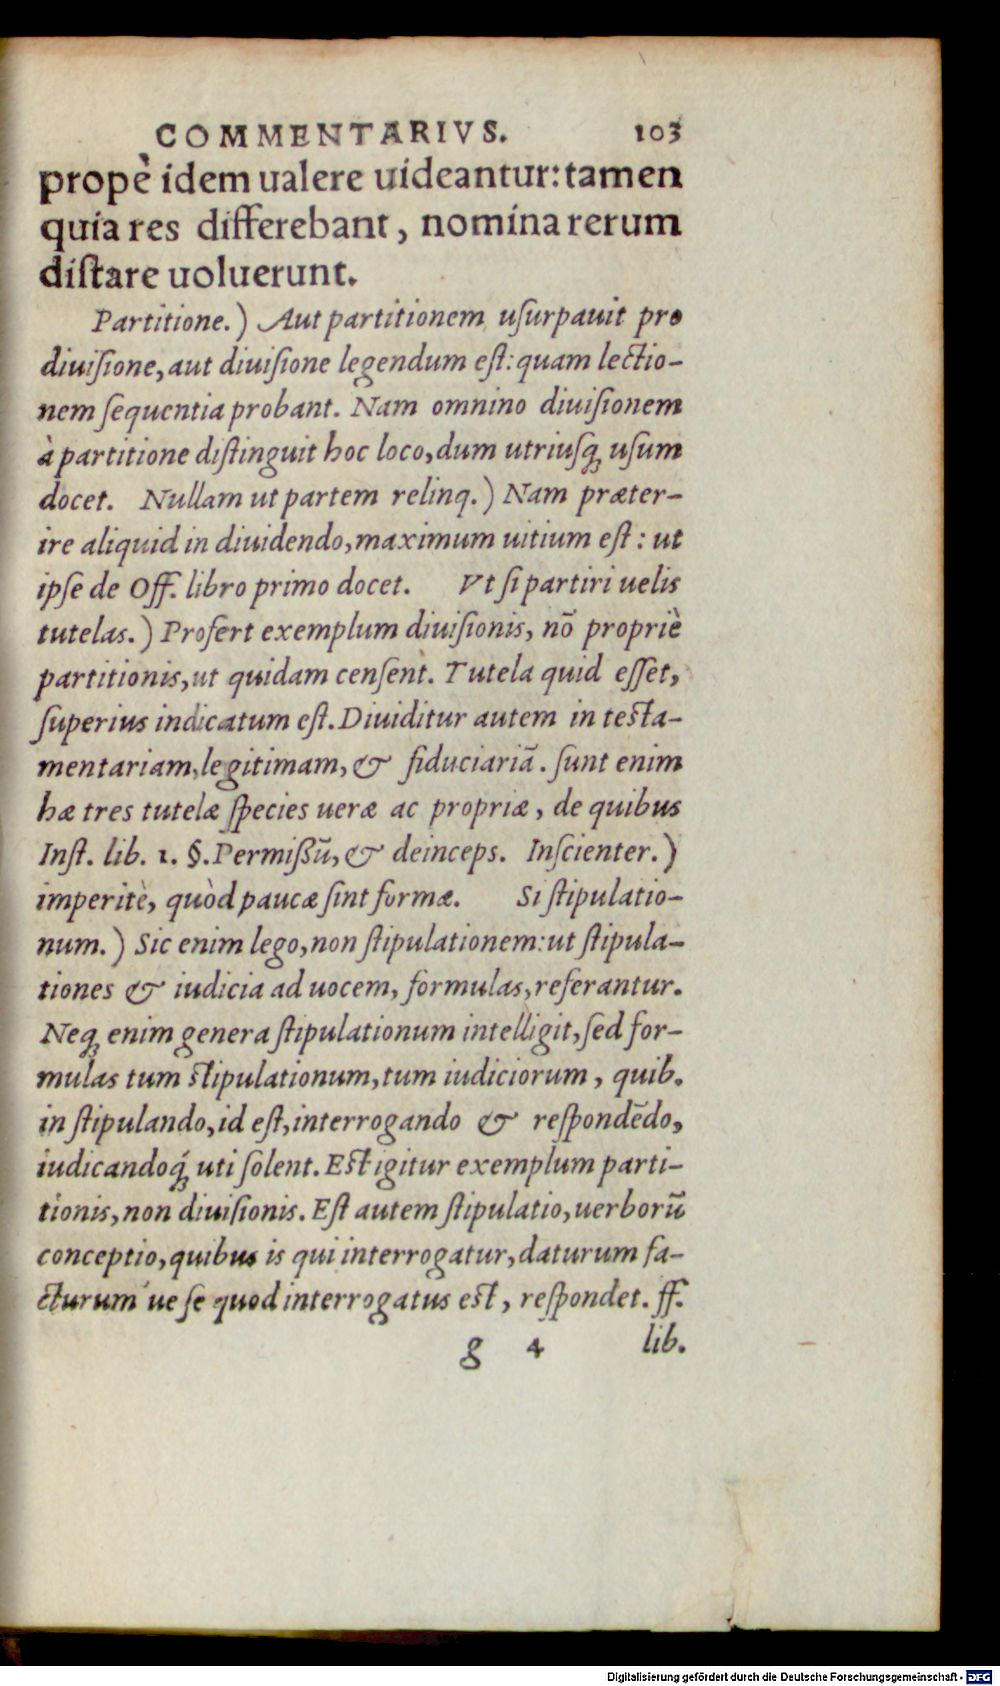 COMMENTARIVS. 103
propè idem ualere uideantur: tamen
quia res differebant, nomina rerum
diſtare uoluerunt.
Partitione.) Aut partitionem uſurpauit pro
diuiſione, aut diuiſione legendum eſt: quam lectio-
nem ſequentia probant. Nam omnino diuiſionem
à partitione diſtinguit hoc loco, dum utriuſq; uſum
docet. Nullam ut partem relinq.) Nam præter-
ire aliquid in diuidendo, maximum uitium eſt: ut
ipſe de Off. libro primo docet. Vt ſi partiri uelis
tutelas.) Profert exemplum diuiſionis, nō propriè
partitionis, ut quidam cenſent. Tutela quid eſſet,
ſuperius indicatum eſt. Diuiditur autem in teſta-
mentariam, legitimam, & fiduciariā. ſunt enim
hæ tres tutelæ ſpecies ueræ ac propriæ, de quibus
Inſt. lib. 1. §. Permiſſū, & deinceps. Inſcienter.)
imperitè, quòd paucæ ſint formæ. Si ſtipulatio-
num.) Sic enim lego, non ſtipulationem: ut ſtipula-
tiones & iudicia ad uocem, formulas, referantur.
Neq; enim genera ſtipulationum intelligit, ſed for-
mulas tum ſtipulationum, tum iudiciorum, quib.
in ſtipulando, id eſt, interrogando & reſpondēdo,
iudicandoq́; uti ſolent. Eſt igitur exemplum parti-
tionis, non diuiſionis. Eſt autem ſtipulatio, uerborū
conceptio, quibus is qui interrogatur, daturum fa-
cturum ́ue ſe quod interrogatus eſt, reſpondet. ff.
g 4 lib.
Digitalisierung gefördert durch die Deutsche Forschungsgemeinschaft - DFG